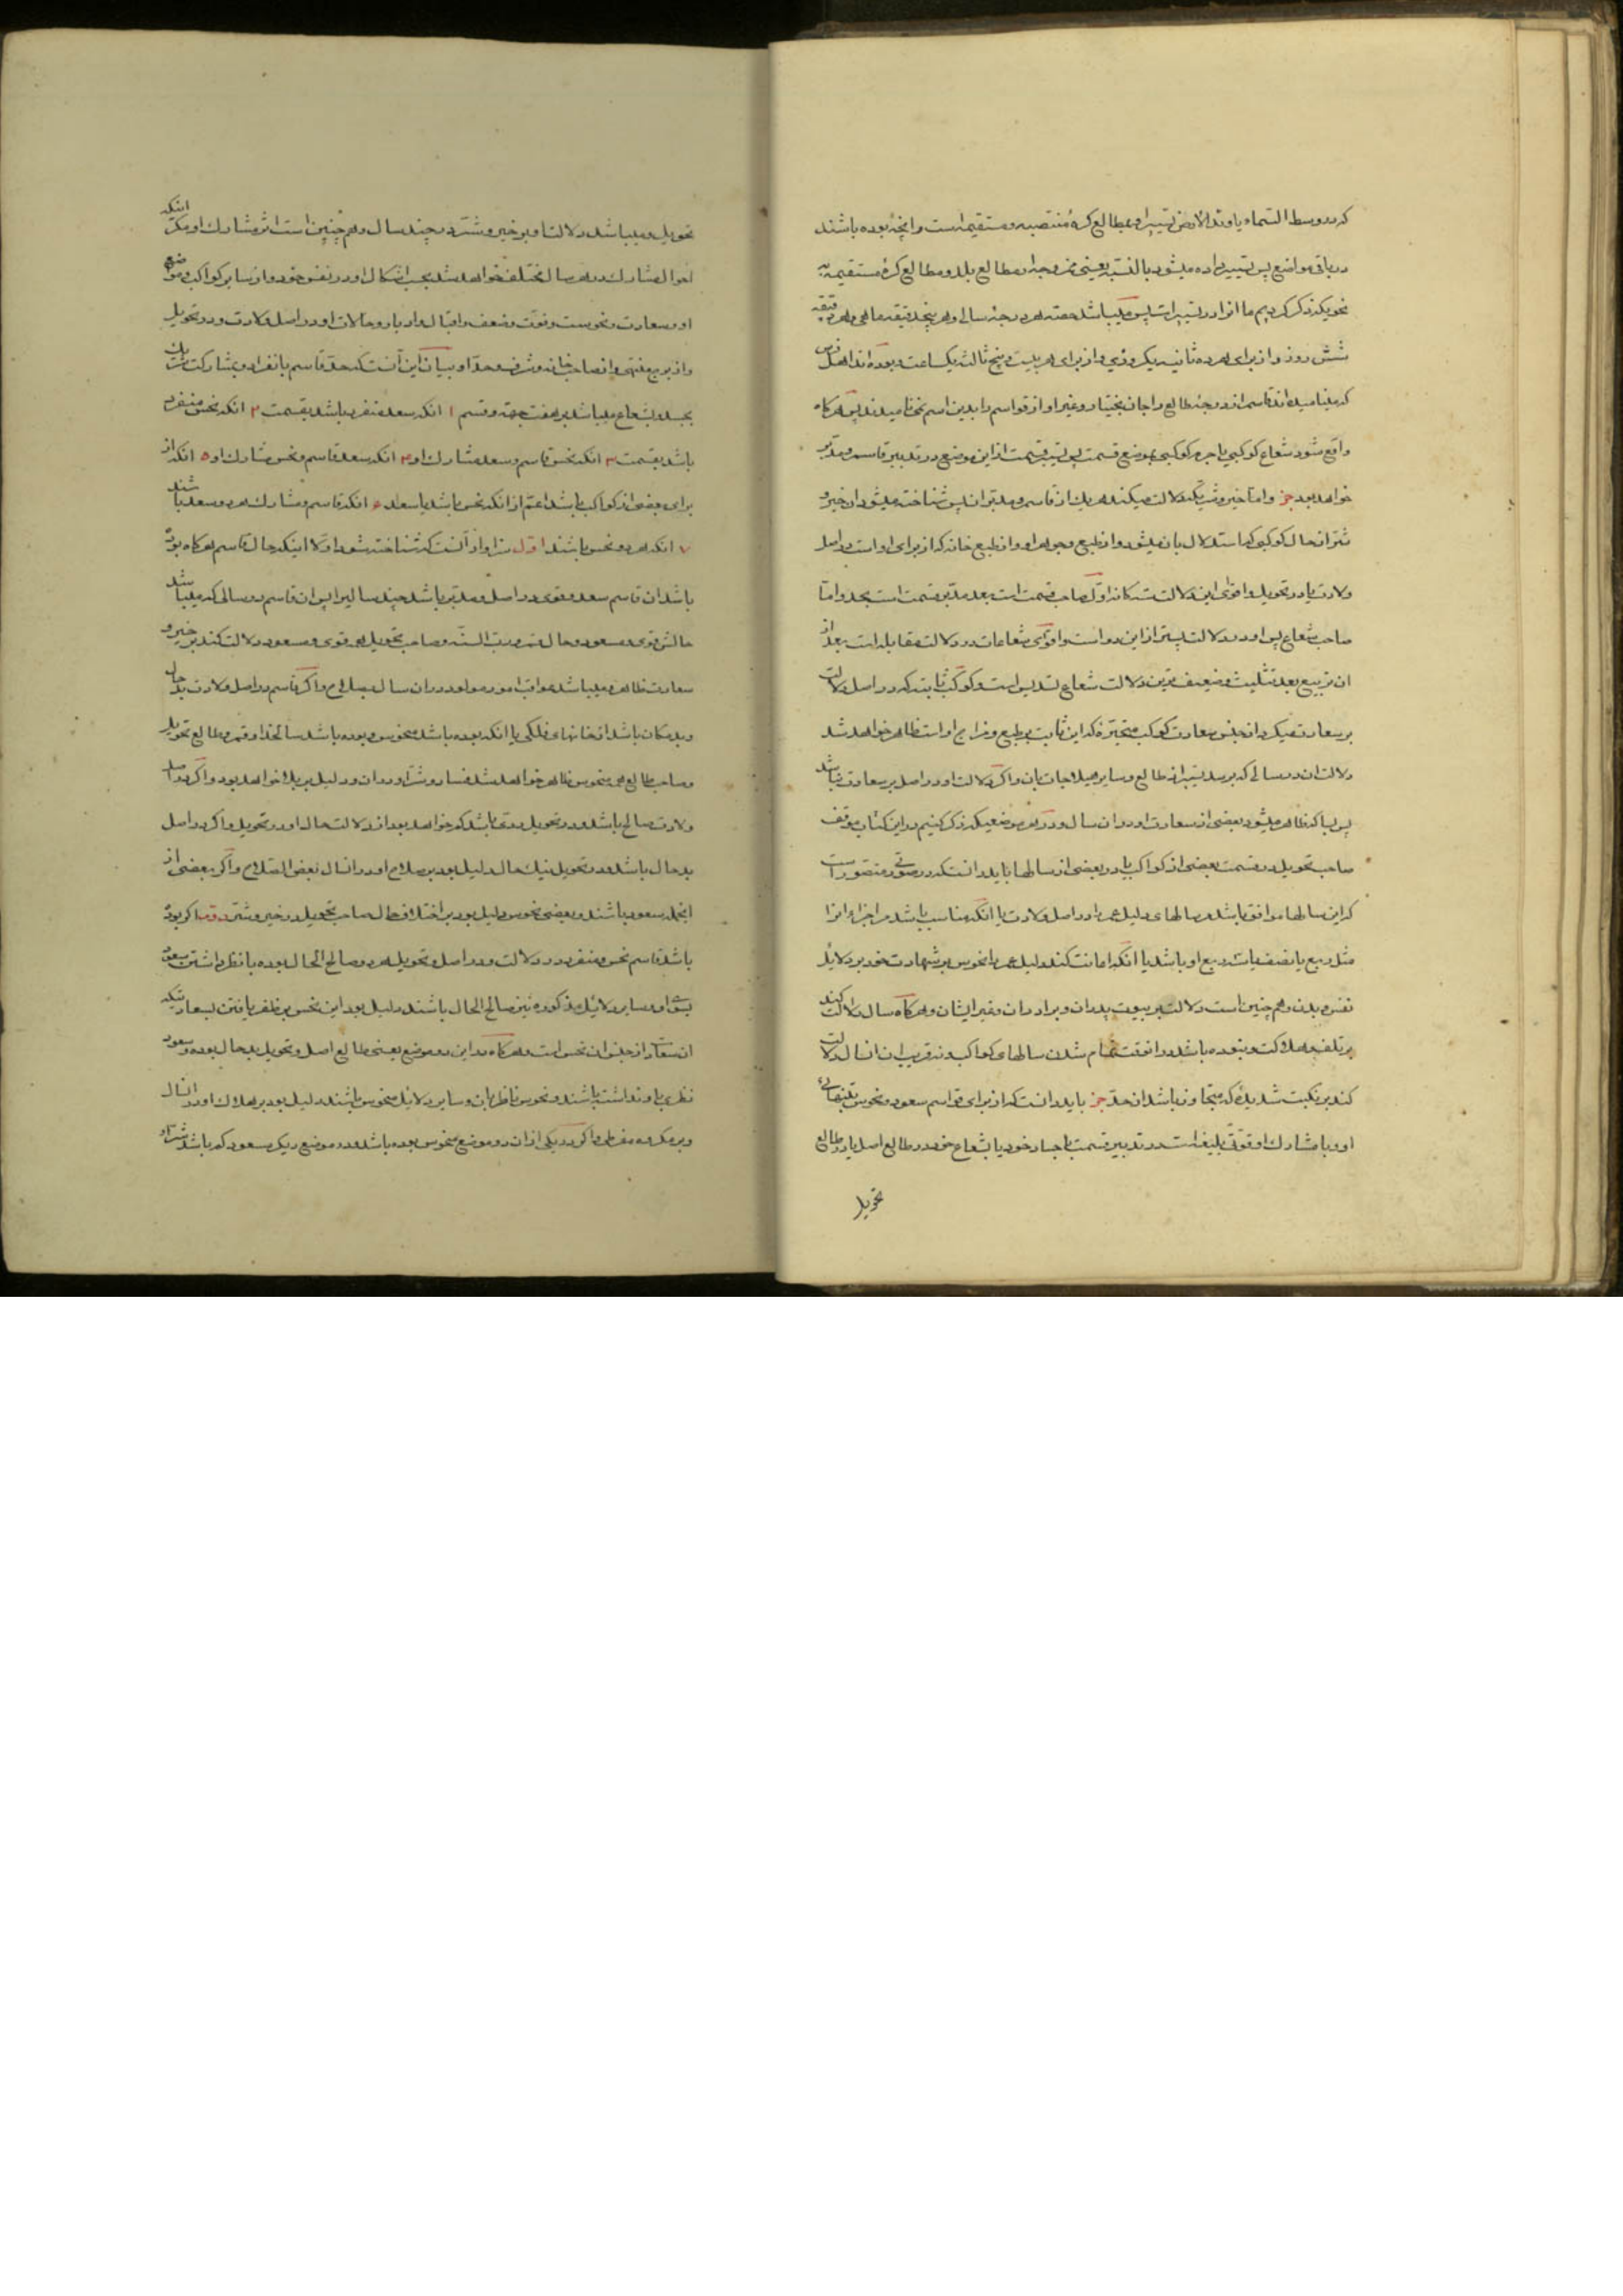 که در وسط السماء یا وتد الارض تسییر او بمطالع کرهٔ منتصبه و مستقیمه است و انچه بوده باشند
در باقی مواضع پس تسییر داده میشود بالنسبه یعنی ممزوجه از مطالع بلد و مطالع کرهٔ مستقیمه به
نحویکه ذکر کردیم ما انرا در تسییرات پس میباشد حصه هر درجه سالی و هر پنج دقیقه ماهی و هر دقیقه
شش روز و از برای هر ده ثانیه یکروزی و از برای هر بیست و پنج ثالثه یکساعت و بوده اند اهل فرس
که مینامیده اند قاسم از درجه طالع را جان بختیار و غیر او از قواسم را بدین اسم نمینامیدند پس هرکاه
واقع شود شعاع کوکبی یا جرم کوکبی بموضع قسمت پس تسییر قسمت از این موضع در تدبیر قاسم و مدبر
خواهد بود و اما خیر و شریکه دلالت میکند هر یک از قاسم و مدبر بران پس شناخته میشود ان خیر و
شر از حال کوکبی که استدلال بان میشود و از طبع و جوهر او و از طبع خانه که از برای او است در اصل
ولادت یا در تحویل و اقوی این دلالت کننده کان اول صاحب قسمت است بعد مدبر قسمت است بجسد و اما
صاحب شعاع پس او در دلالت پستر از این دو است و اقوای شعاعات در دلالت مقابله است بعد از
ان تربیع بعد تثلیث و ضعیف ترین دلالت شعاع تسدیس است و کوکب ثابته که در اصل دلالت
بر سعادت میکرد از جنس سعادت کوکب متحیره که این ثابت بر طبع و مزاج او است ظاهر خواهد شد
دلالت ان در سالی که برسد تسییر از طالع و سایر هیلاجات بان و اکر دلالت او در اصل بر سعادت نباشد
پس بسا که ظاهر میشود بعضی از سعادت او در ان سال و در هر موضعیکه ذکر کنیم در این کتاب موقف
صاحب تحویل در قسمت بعضی از کواکب یا در بعضی از سالها باید دانست که در صورتی متصور است
که این سالها موافق باشد سالهای دلیل عمر را در اصل ولادت یا انکه مناسب باشد مر اجزاء انرا
مثل ربع یا نصف یا ثلث ربع او باشد یا انکه اعانت کند دلیل عمر را نحوس بر شهادت خود بر دلایل
نفس و بدن و هم چنین است دلالت بر بیوت پدران و برادران و غیر ایشان و هرکاه سال دلالت کند
بر تلف و هلاکت و نبوده باشد در انوقت تمام شدن سالهای کواکب و نه قریب بان انسال دلالت
کند بر نکبت شدیدهٔ که متجاوز باشد از حد باید دانست که از برای قواسم سعود و نحوس بتنهائی
او و با مشارک او قوتی بلیغ است در تدبیر قسمت باجساد خود یا بشعاع خود در طالع اصل یا در طالع
تحویل
تحویل و میباشد دلالت او بر خیر و شر در چند سال و هم چنین است اثر مشارک او مکر اینکه
احوال مشارک در هر سال مختلف خواهد شد بحسب اشکال او در نفس خود و از سایر کواکب و موضع
او و سعادت و نحوست و قوت و ضعف و اقبال و ادبار و حالات او در اصل ولادت و در تحویل
و از بروج منتهی و از صاحب خانه و شرف و حد او و بیان این آنست که حد قاسم بانفراد و بمشارکت شریک
بجسد و شعاع میباشد بر هفت جهة و قسم ۱ انکه سعد منفرد باشد بقسمت ۲ انکه نحس منفرد
باشد بقسمت ۳ انکه نحس قاسم و سعد مشارک او ۴ انکه سعد قاسم و نحس مشارک او ۵ انکه از
برای بعضی از کواکب باشد اعم از انکه نحس باشد یا سعد ۶ انکه قاسم و مشارک هر دو سعد باشند
۷ انکه هر دو نحس باشند اول سزاوار آنست که شناخته شود اولا اینکه حال قاسم هرکاه بوده
باشد ان قاسم سعد و قوی در اصل و مدبر باشد چند سالیرا پس ان قاسم در سالی که میباشد
حالش قوی و مسعود و حال رب السنه و صاحب تحویل هم قوی و مسعود دلالت کند بر خیر و
سعادت ظاهر و میباشد عواقب امور مولود در ان سال بصلاح و اکر قاسم در اصل ولادت بد حال
و بد مکان باشد از خانهای فلکی یا انکه بوده باشد منحوس و بوده باشد سالخدا و قمر و طالع تحویل
و صاحب طالع هم منحوس ظاهر خواهد شد فساد و شر او در ان و دلیل بر بلا خواهد بود و اکر در اصل
ولادت صالح باشد و در تحویل ردی باشد کم خواهد بود از دلالت حال او در تحویل و اکر در اصل
بد حال باشد و در تحویل نیک حال دلیل بود بر صلاح او در انسال بعض الصلاح و اکر بعضی از
اینجمله سعود باشند و بعضی نحوس دلیل بود بر اختلاف حال صاحب تحویل در خیر و شر دویم اکر بوده
باشد قاسم نحس و منفرد در دلالت و در اصل و تحویل هر دو صالح الحال بوده با نظر داشتن سعود
بسوی او و سایر دلائل مذکوره نیز صالح الحال باشند دلیل بود این نحس بر ظفر یافتن بسعادتیکه
ان سعادت از جنس ان نحس است و هرکاه در این دو موضع یعنی طالع اصل و تحویل بد حال بوده و سعود
نظری باو نداشته باشند و نحوس ناظر بان و سایر دلایل منحوس باشند دلیل بود بر هلاک او در انسال
و بر مکروه مفرطی و اکر در یکی از ان دو موضع منحوس بوده باشد و در موضع دیکر مسعود کم باشد شر او